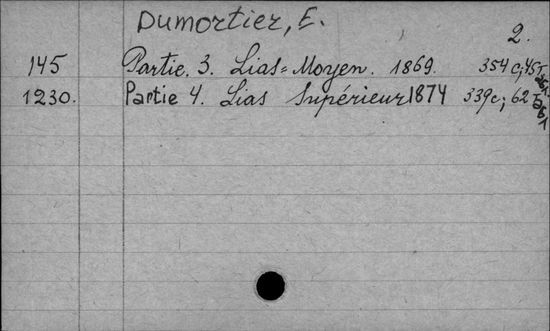 Dumortier, E.
2.
145 Partie. 3. Lias=Moyen. 1869. 354 c; 45 T.
1230. Partie 4. Lias Supérieur 1874 339c; 62 T.